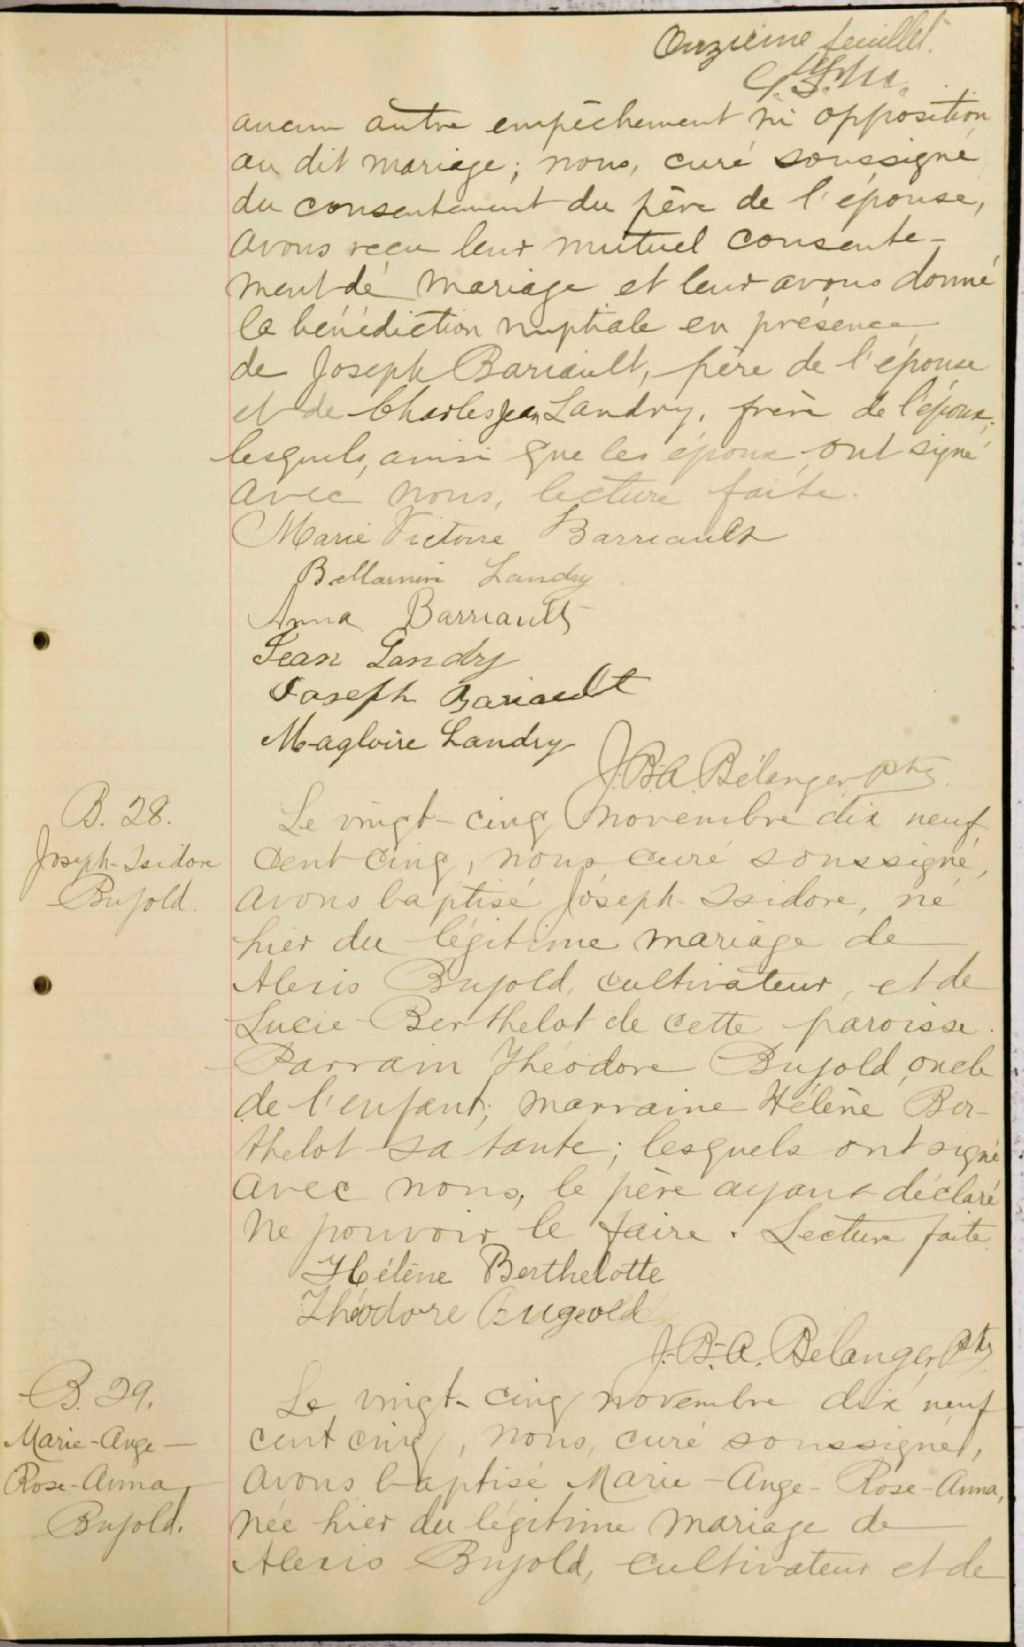 Onzième feuillet.
aucun autre empêchement ni opposition
au dit mariage; nous, curé soussigné
du consentement du père de l'épouse,
avons reçu leur mutuel consente-
ment de mariage et leur avons donné
la bénédiction nuptiale en présence
de Joseph Bariault, père de l'épouse
et de Charles Jean Landry, frère de l'époux,
lesquels, ainsi que les époux, ont signé
avec nous, lecture faite.
Marie Victoire Barriault
Bellarmin Landry
Anna Barriault
Jean Landry
Joseph Bariault
Magloire Landry
J.B.A. Bélanger, Ptre
B. 28.
Joseph-Isidore
Bujold.
Le vingt-cinq novembre dix neuf
cent cinq, nous curé soussigné,
avons baptisé Joseph-Isidore, né
hier du légitime mariage de
Alexis Bujold, cultivateur, et de
Lucie Berthelot de cette paroisse.
Parrain Théodore Bujold, oncle
de l'enfant; marraine Hélène Ber-
thelot sa tante; lesquels ont signé
avec nous, le père ayant déclaré
ne pouvoir le faire. Lecture faite.
Hélène Berthelotte
Théodore Bugeold
J.-B.-A. Bélanger, Ptre
B. 29.
Marie-Ange-
Rose-Anna
Bujold.
Le vingt-cinq novembre dix neuf
cent cinq, nous, curé soussigné,
avons baptisé Marie-Ange-Rose-Anna,
née hier du légitime mariage de
Alexis Bujold, cultivateur et de